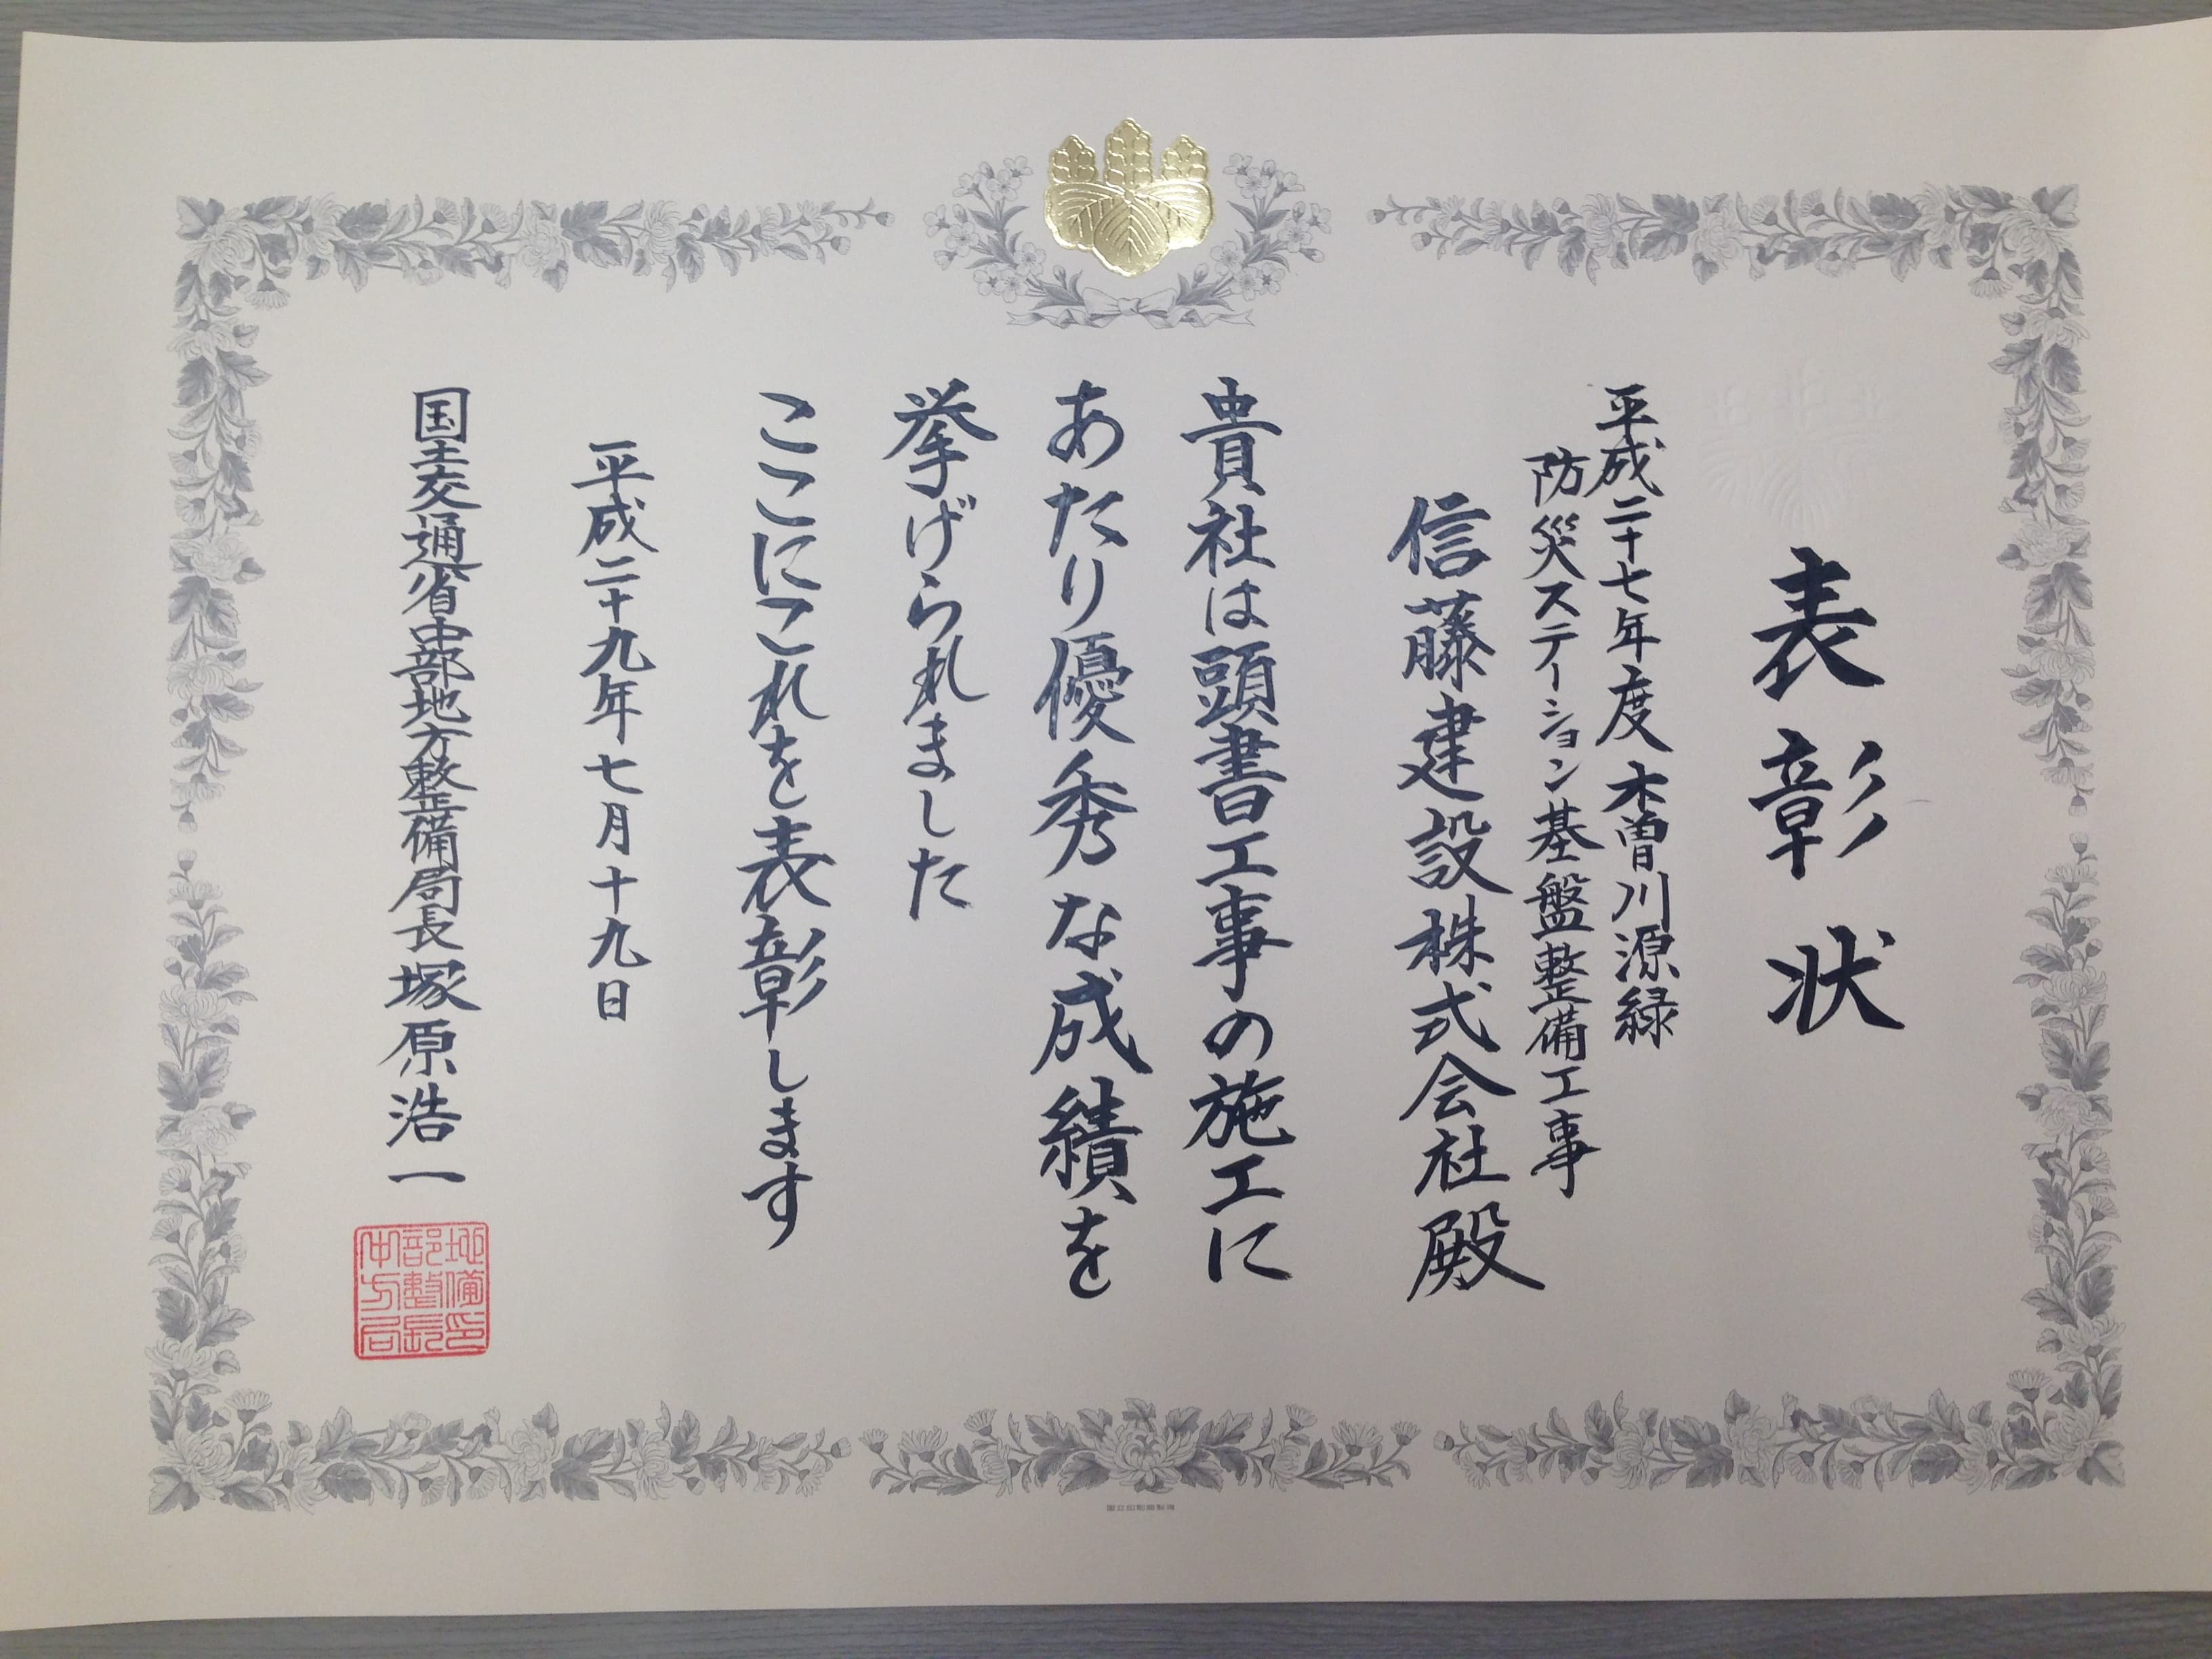 表彰状
平成二十七年度木曽川源緑
防災ステーション基盤整備工事
信藤建設株式会社殿
貴社は頭書工事の施工に
あたり優秀な成績を
挙げられました
ここにこれを表彰します
平成二十九年七月十九日
国土交通省中部地方整備局長塚原浩一
地備印
部整長
中方局
国立印刷局製造